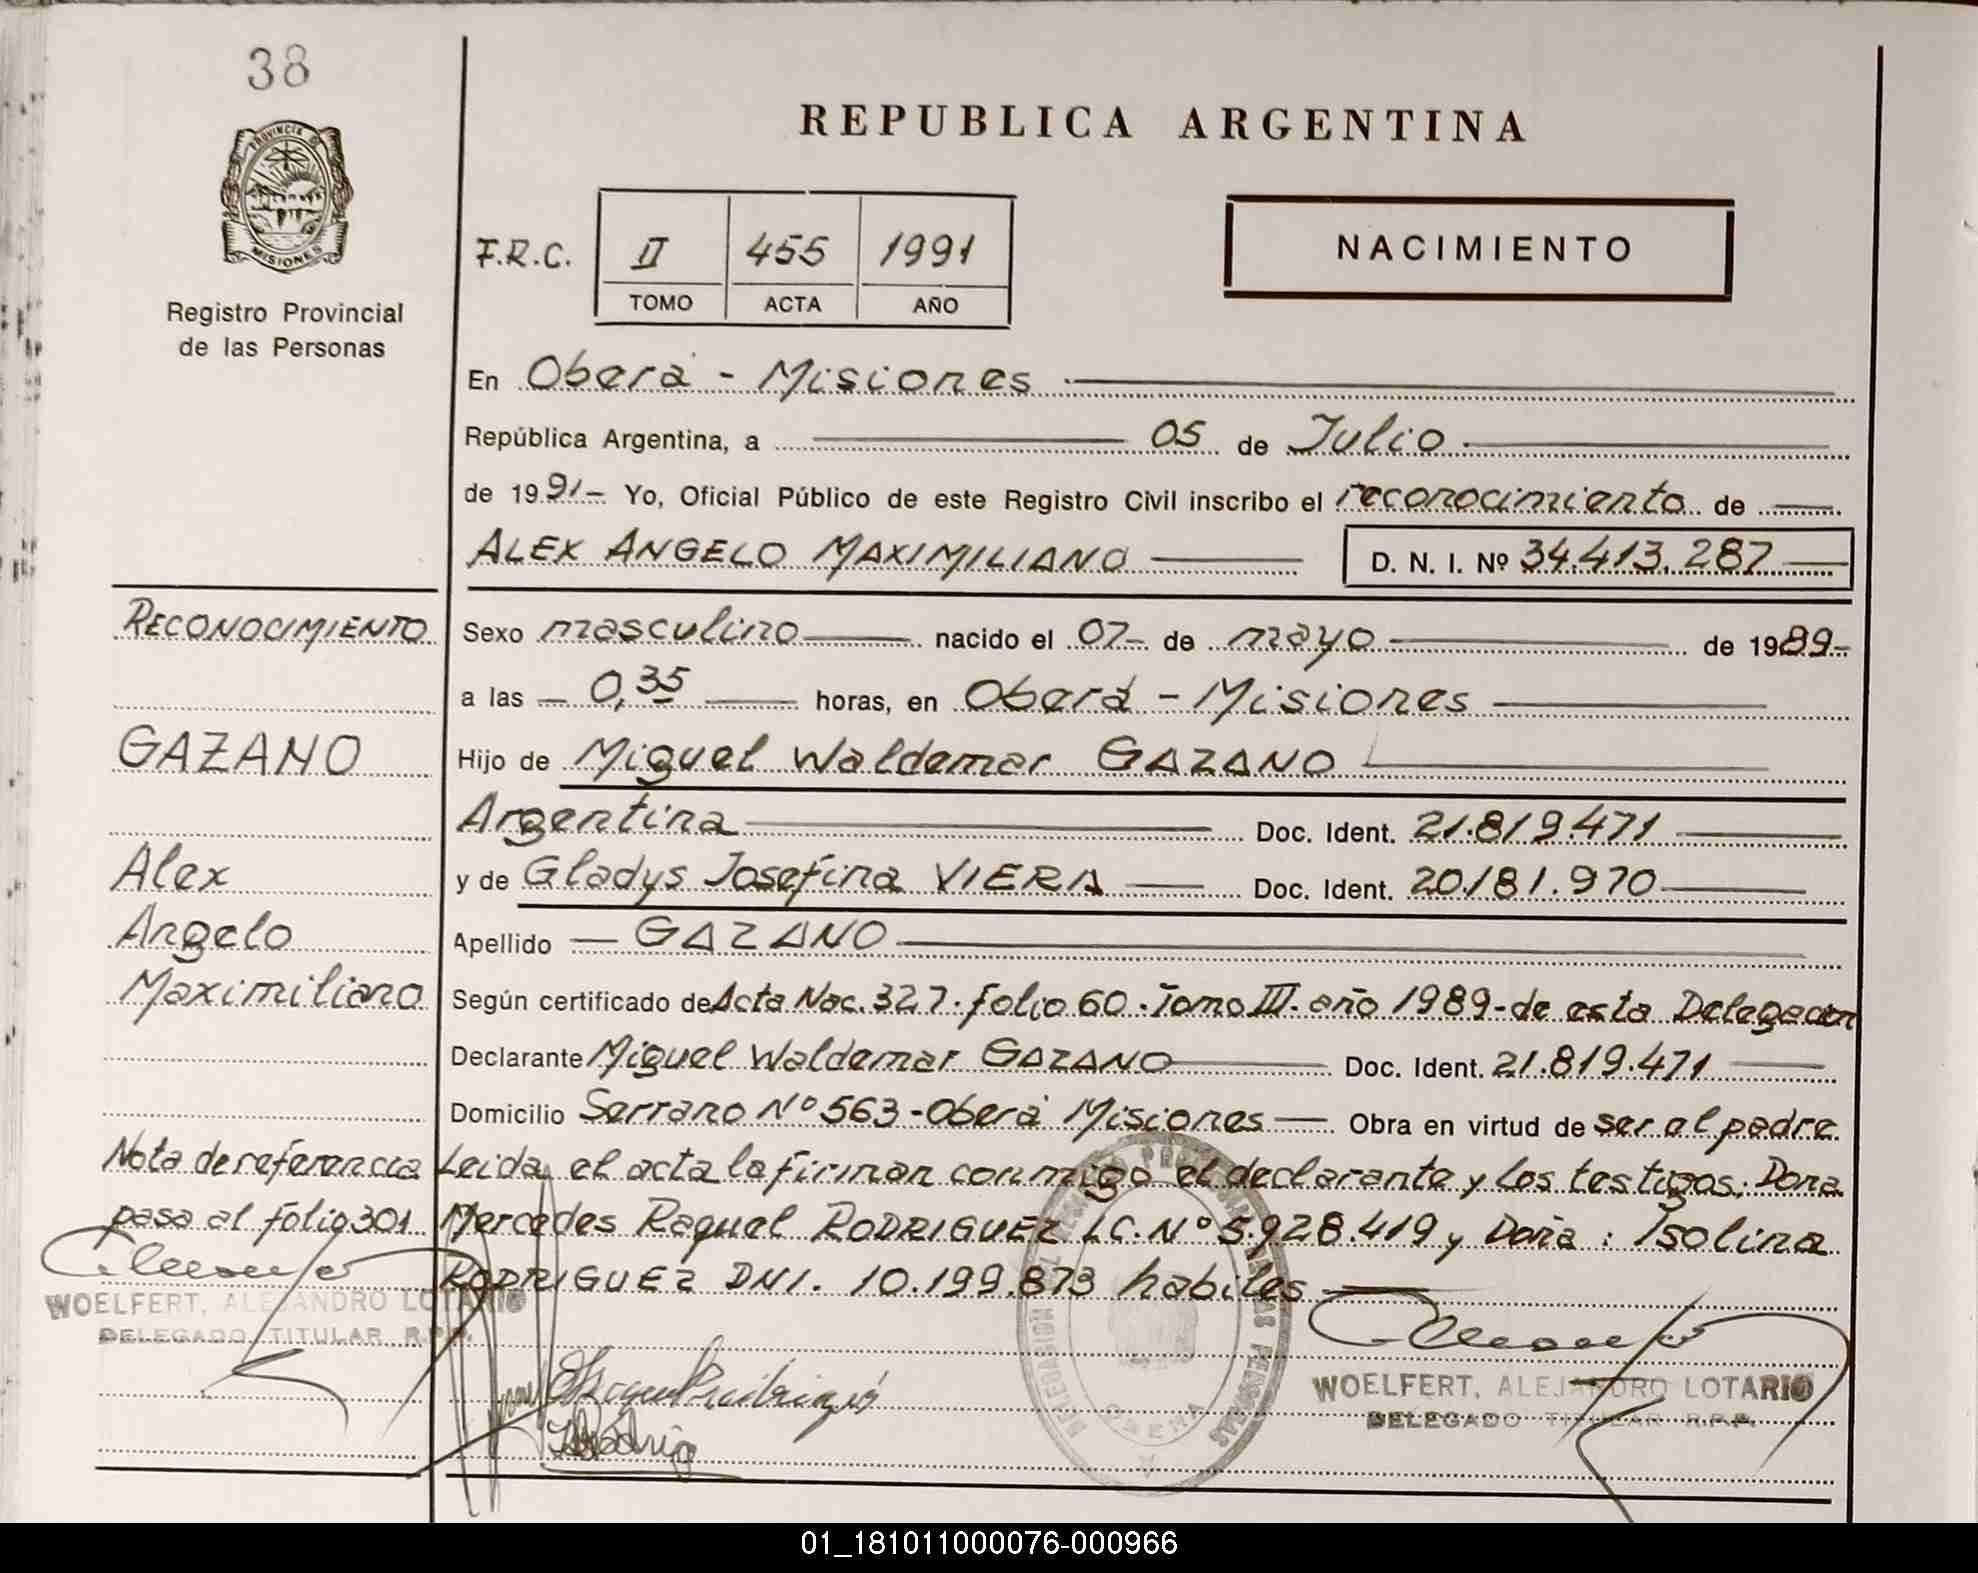 38
REPUBLICA ARGENTINA
PROVINCIA D
MISIONES
Registro Provincial
de las Personas
F.R.C. II 455 1991
TOMO ACTA AÑO
NACIMIENTO
En Oberá - Misiones
República Argentina, a 05 de Julio
de 1991- Yo, Oficial Público de este Registro Civil inscribo el reconocimiento de
ALEX ANGELO MAXIMILIANO D. N. I. Nº 34.413.287
RECONOCIMIENTO
Sexo masculino nacido el 07- de mayo de 1989-
a las - 0,35 horas, en Oberá - Misiones
GAZANO
Hijo de Miguel Waldemar GAZANO
Argentina Doc. Ident. 21.819.471
Alex
y de Gladys Josefina VIERA Doc. Ident. 20.181.970
Angelo
Apellido GAZANO
Maximiliano
Según certificado de Acta Nac. 327. folio 60. Tomo III. año 1989- de esta Delegacion
Declarante Miguel Waldemar GAZANO Doc. Ident. 21.819.471
Domicilio Serrano Nº 563 - Oberá Misiones Obra en virtud de ser el padre.
Nota de referencia
pasa al folio 301
Leida el acta la firman conmigo el declarante y los testigos: Doña
Mercedes Raquel RODRIGUEZ LC. Nº 5.928.419 y Doña: Isolina
RODRIGUEZ DNI. 10.199.873 habiles
WOELFERT, ALEJANDRO LOTARIO
DELEGADO TITULAR R.P.P.
OBERA
WOELFERT, ALEJANDRO LOTARIO
DELEGADO TITULAR R.P.P.
01_181011000076-000966